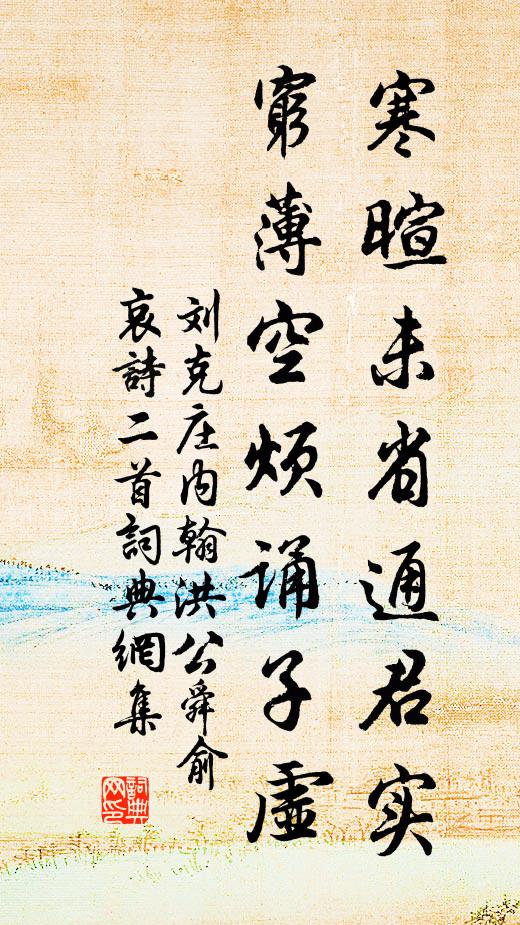 寒暄未省通君实
窮薄空烦诵子虚
刘克庄内翰洪公舜俞
哀詩二首詞典網集
詞典
网印